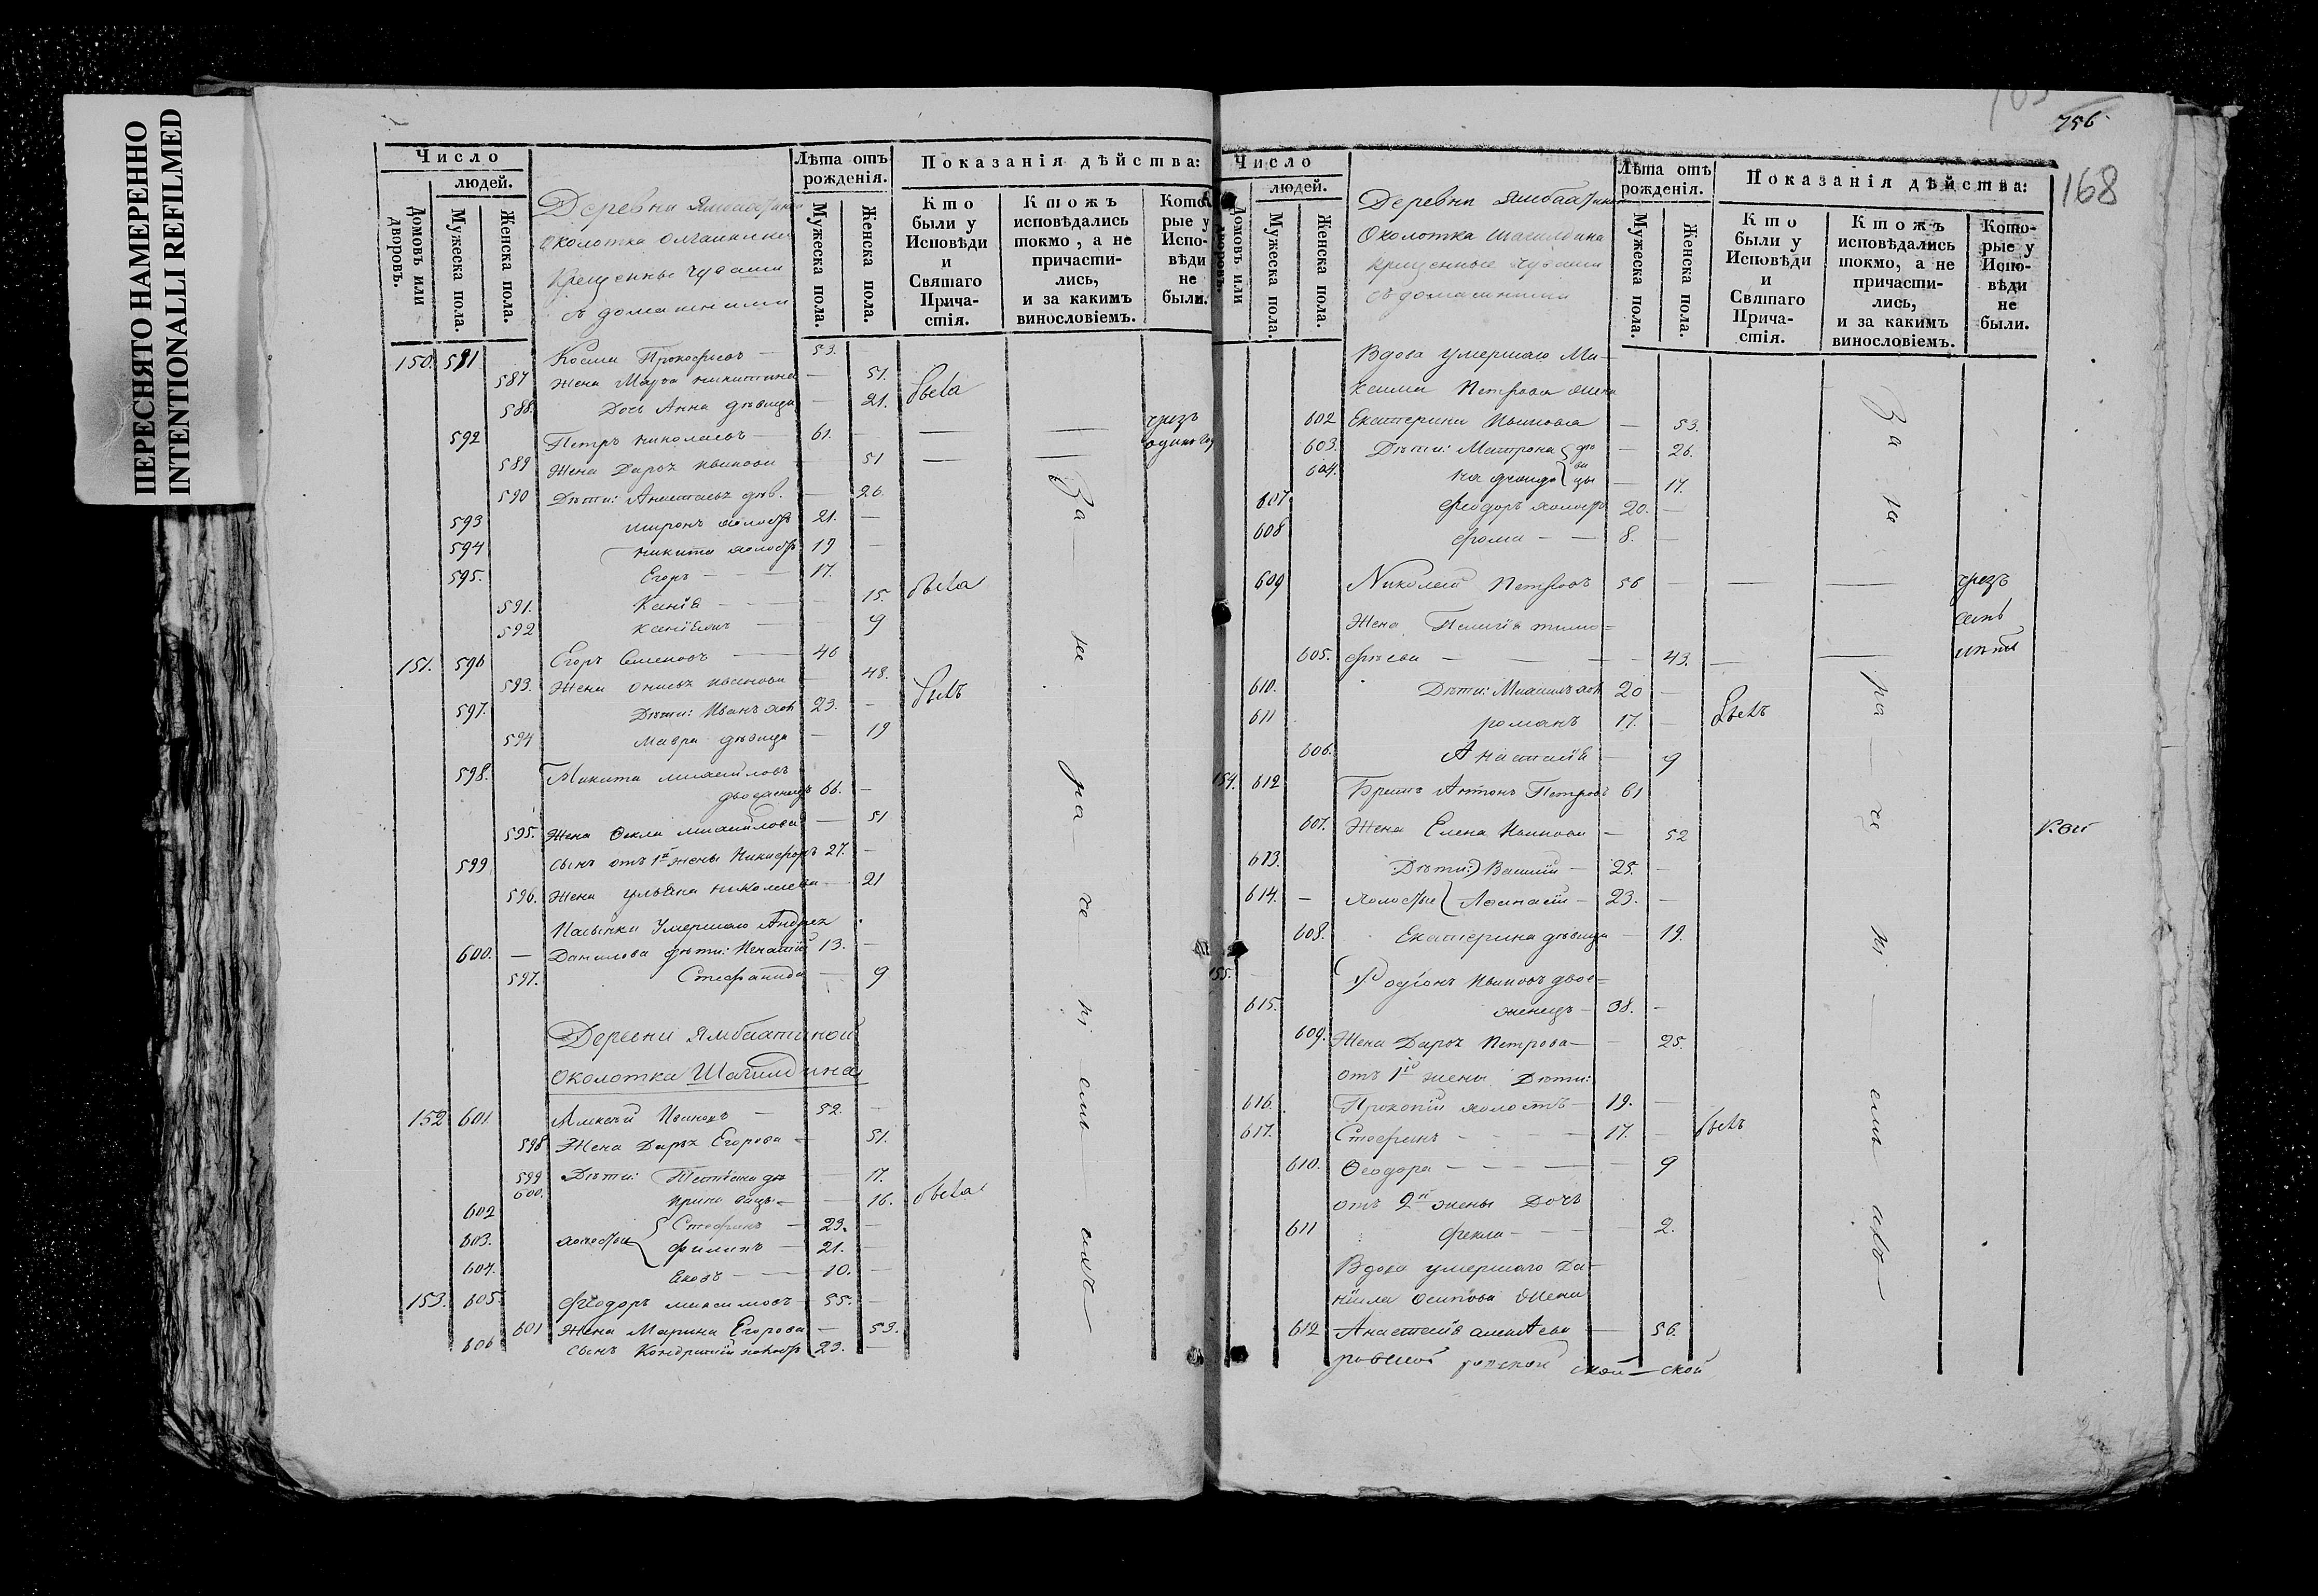 ПЕРЕСНЯТО НАМЕРЕННО
INTENTIONALLI REFILMED
Число
людей.
Домовъ или дворовъ.
Мужеска пола.
Женска пола.
Деревни
Околотка
Крещенные Чуваши
съ домашними
Лѣта отъ рожденія.
Мужеска пола.
Женска пола.
Показанія дѣйства:
Кто были у Исповѣди и Святаго Причастія.
Ктожъ исповѣдались токмо, а не причастились, и за какимъ винословіемъ.
Которые у Исповѣди не были.
150. 591 Косма Прокофьевъ — 53.
587 Жена Марѳа Никитина — 51.
588. Дочь Анна дѣвица — 21.
592 Петръ Николаевъ — 61. — чрезъ
589 Жена Дарья Иванова 51
590 Дѣти: Анастасья дѣв. — 26.
593 Миронъ холостъ 21. —
594 Никита холостъ 19 —
595. Егоръ — 17.
591. Ксенія — 15.
592 9
151. 596 Егоръ Семеновъ — 46
593. Жена Иванова 48.
597. Дѣти: Иванъ хол 23. —
594 Мавра дѣвица — 19
598. Никита Михайловъ
двоеженецъ 66. —
595. Жена Ѳекла Михайлова — 51
599 Сынъ отъ 1й жены Никифоръ 27. —
596. Жена Ульяна Николаева 21
Пасынки Умершаго Андрея
600. — Данилова дѣти: Игнатій 13. —
597. Стефанида — 9
Деревни Ямбахтиной
Околотка Шагилдина
152 601 Алексѣй Ивановъ — 52. —
598 Жена Дарья Егорова — 51.
599 Дѣти: Татіана дѣ 17.
600. Ирина вицы — 16.
602 Стефанъ — 23. —
603. холостые Филипъ — 21. —
604. Яковъ — 10. —
153. 605. Ѳеодоръ Максимовъ 55. —
601 Жена Марина Егорова — 53.
606 Сынъ Кондратій холостъ 23. —
756.
168
Число
людей.
Домовъ или дворовъ.
Мужеска пола.
Женска пола.
Деревни
Околотка Шагилдина
Крещенные Чуваши
съ домашними
Лѣта отъ рожденія.
Мужеска пола.
Женска пола.
Показанія дѣйства:
Кто были у Исповѣди и Святаго Причастія.
Ктожъ исповѣдались токмо, а не причастились, и за какимъ винословіемъ.
Которые у Исповѣди не были.
Вдова умершаго Ма-
ксима Петрова жена
602 Екатерина Иванова — 53.
603. Дѣти: Матрона дѣ — 26.
604. вицы — 17.
607 Ѳеодоръ холостъ 20. —
608 Ѳома — — 8. —
609 Николай Петровъ 56 — — — чрезъ
семь
Жена Пелагія Тимо=
605. фѣева — — — 43. — — лѣтъ
610. Дѣти: Михаилъ хол 20 —
611 Романъ 17. —
606. Анастасія — 9
154. 612 Братъ Антонъ Петровъ 61
607. Жена Елена Иванова — 52
613. Дѣти: Василій — 25. —
614. — холостые Аѳанасій — 23. —
608. Екатерина дѣвица — 19.
155. Родіонъ Ивановъ двое=
615. женецъ — 38. —
609. Жена Дарья Петрова — 25.
отъ 1й жены Дѣти:
616. Прокопій холостъ — 19. —
617. Стефанъ — 17. —
610. Ѳеодора — 9
отъ 2й жены Дочь
611 Ѳекла — 2.
Вдова умершаго Да-
ніила Осипова жена
612 Анастасія Алексѣева — 56.
ской — ской